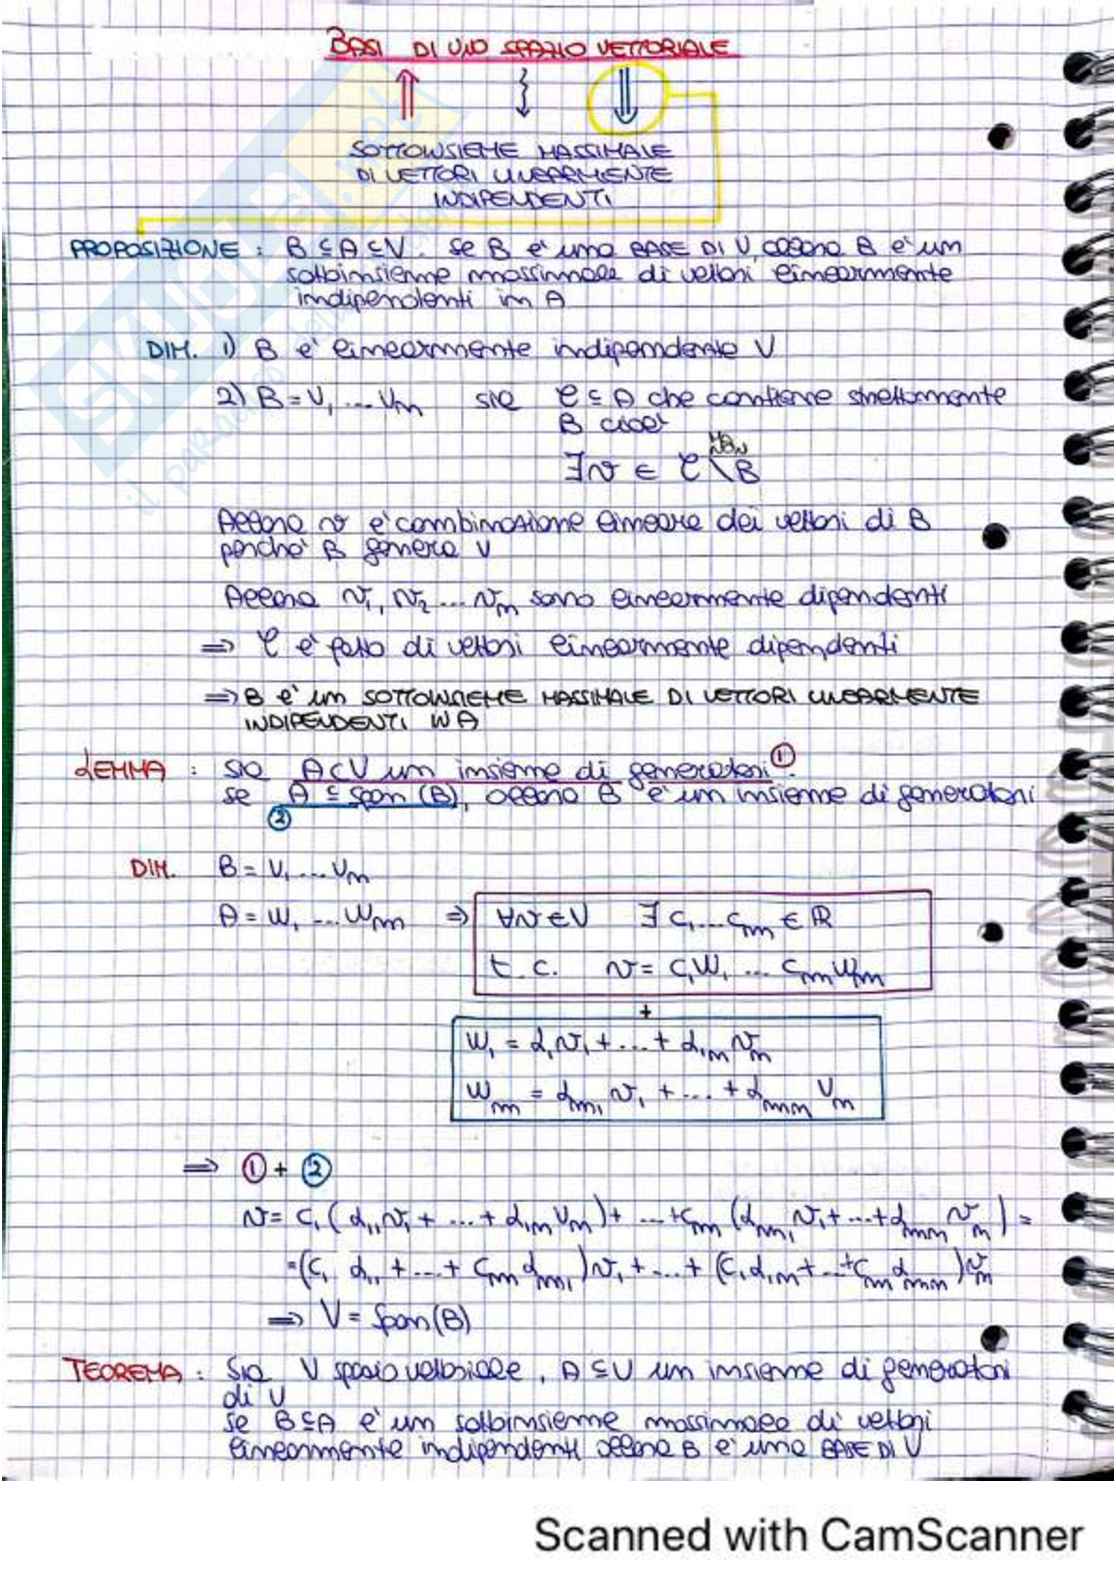 BASI DI UNO SPAZIO VETTORIALE
SOTTOINSIEME MASSIMALE
DI VETTORI LINEARMENTE
INDIPENDENTI
PROPOSIZIONE : B ⊆ A ⊆ V. Se B è una BASE DI V, allora B è un
sottoinsieme massimale di vettori linearmente
indipendenti in A
DIM. 1) B è linearmente indipendente V
2) B = V₁ ... Vₙ sia C ⊆ A che contiene strettamente
B cioè
∃v ∈ C \ B
Allora v è combinazione lineare dei vettori di B
perché B genera V
Allora v₁, v₂ ... vₙ sono linearmente dipendenti
⇒ C è fatto di vettori linearmente dipendenti
⇒ B è un SOTTOINSIEME MASSIMALE DI VETTORI LINEARMENTE
INDIPENDENTI IN A
LEMMA : Sia A ⊂ V un insieme di generatori ①.
se A ⊆ span (B), allora B è un insieme di generatori
②
DIM. B = V₁ ... Vₙ
A = W₁ ... Wₘ ⇒ ∀v ∈ V ∃ c₁ ... cₘ ∈ ℝ
t.c. v = c₁W₁ ... cₘWₘ
+
W₁ = α₁v₁ + ... + α₁ₙvₙ
Wₘ = αₘ₁v₁ + ... + αₘₙVₙ
⇒ ① + ②
v = c₁(α₁₁v₁ + ... + α₁ₙVₙ) + ... + cₘ(αₘ₁v₁ + ... + αₘₙvₙ) =
= (c₁ α₁₁ + ... + cₘαₘ₁)v₁ + ... + (c₁α₁ₙ + ... + cₘαₘₙ)vₙ
⇒ V = Span(B)
TEOREMA : Sia V spazio vettoriale, A ⊆ V un insieme di generatori
di V
Se B ⊆ A è un sottoinsieme massimale di vettori
linearmente indipendenti allora B è una BASE DI V
Scanned with CamScanner